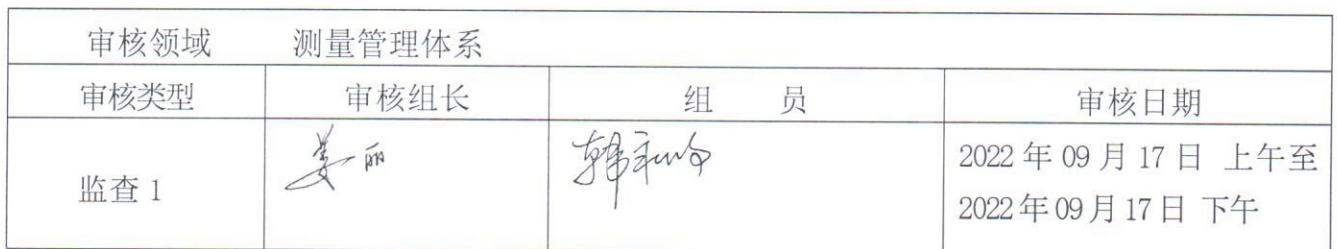 审核领域 测量管理体系
审核类型 审核组长 组 员 审核日期
监查 1 姜丽 2022 年 09 月 17 日 上午至
2022 年 09 月 17 日 下午